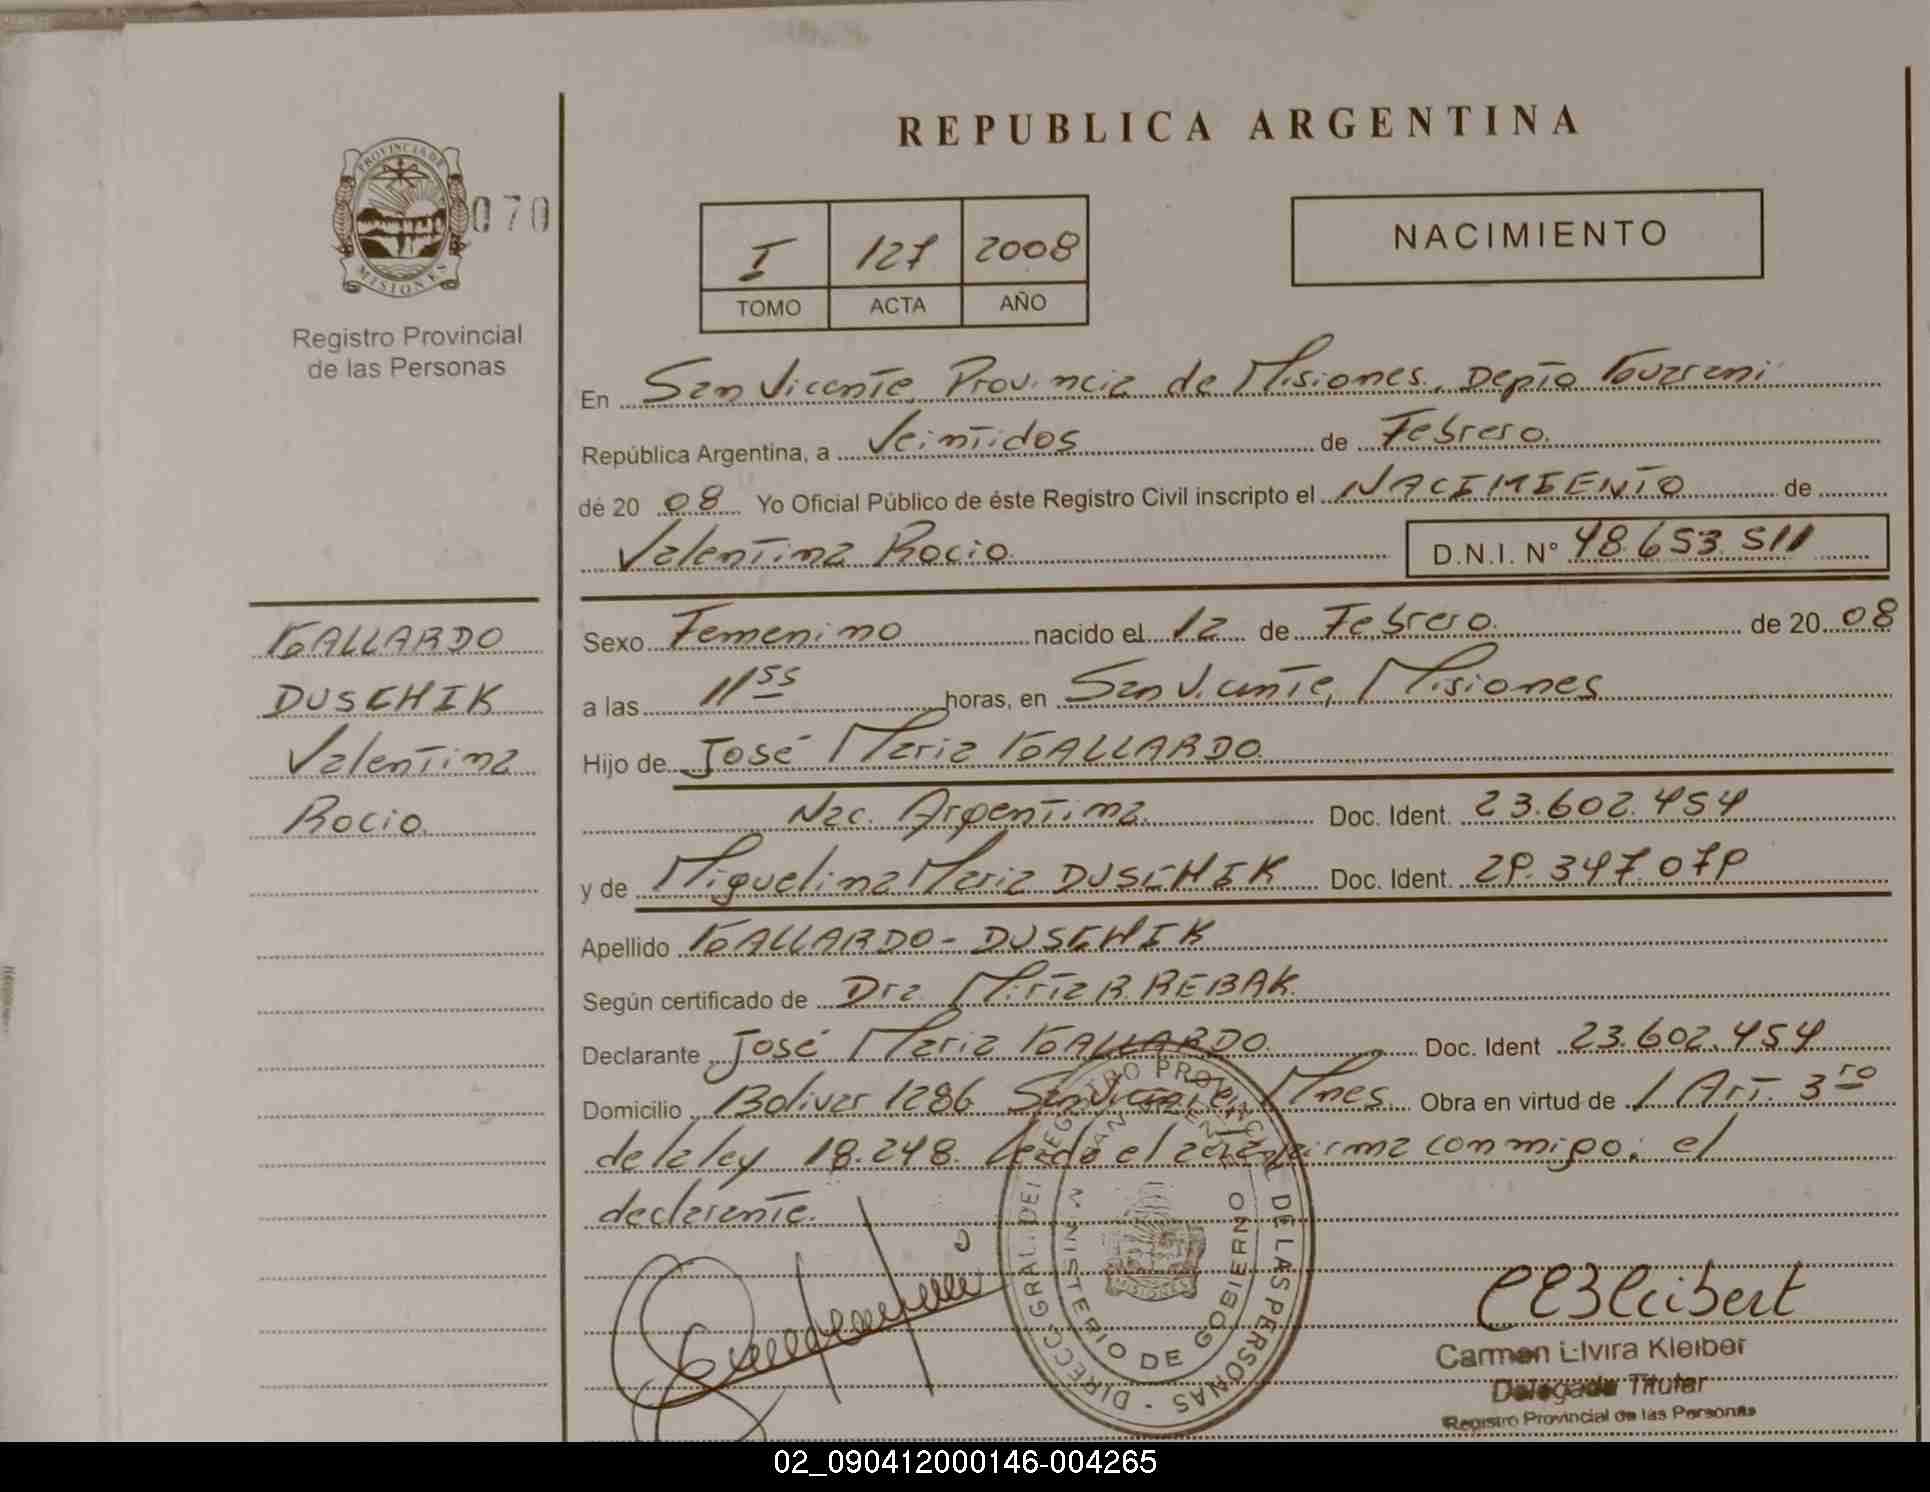 REPUBLICA ARGENTINA
PROVINCIA DE
MISIONES
070
Registro Provincial
de las Personas
I 127 2008
TOMO ACTA AÑO
NACIMIENTO
En San Vicente, Provincia de Misiones, Depto Guarani
República Argentina, a Veintidos de Febrero
dé 20 08 Yo Oficial Público de éste Registro Civil inscripto el NACIMIENTO de
Valentina Rocio D.N.I. N° 48.653.511
GALLARDO
DUSCHIK
Valentina
Rocio
Sexo Femenino nacido el 12 de Febrero de 20 08
a las 11 55 horas, en San Vicente, Misiones
Hijo de José Maria GALLARDO
Nac. Argentina Doc. Ident. 23.602.454
y de Miguelina Maria DUSCHIK Doc. Ident. 29.347.079
Apellido GALLARDO - DUSCHIK
Según certificado de Dra. REBAK
Declarante José Maria GALLARDO Doc. Ident 23.602.454
Domicilio Bolivar 1286 San Vicente, Mnes. Obra en virtud de / Art. 3ro
de la ley 18.248. Leida el acta firma conmigo: el
declarante.
DIRECC. GRAL. DEL REGISTRO PROVINCIAL DE LAS PERSONAS -
SAN VICENTE
MINISTERIO DE GOBIERNO
MISIONES
Carmen Elvira Kleiber
Delegada Titular
Registro Provincial de las Personas
02_090412000146-004265